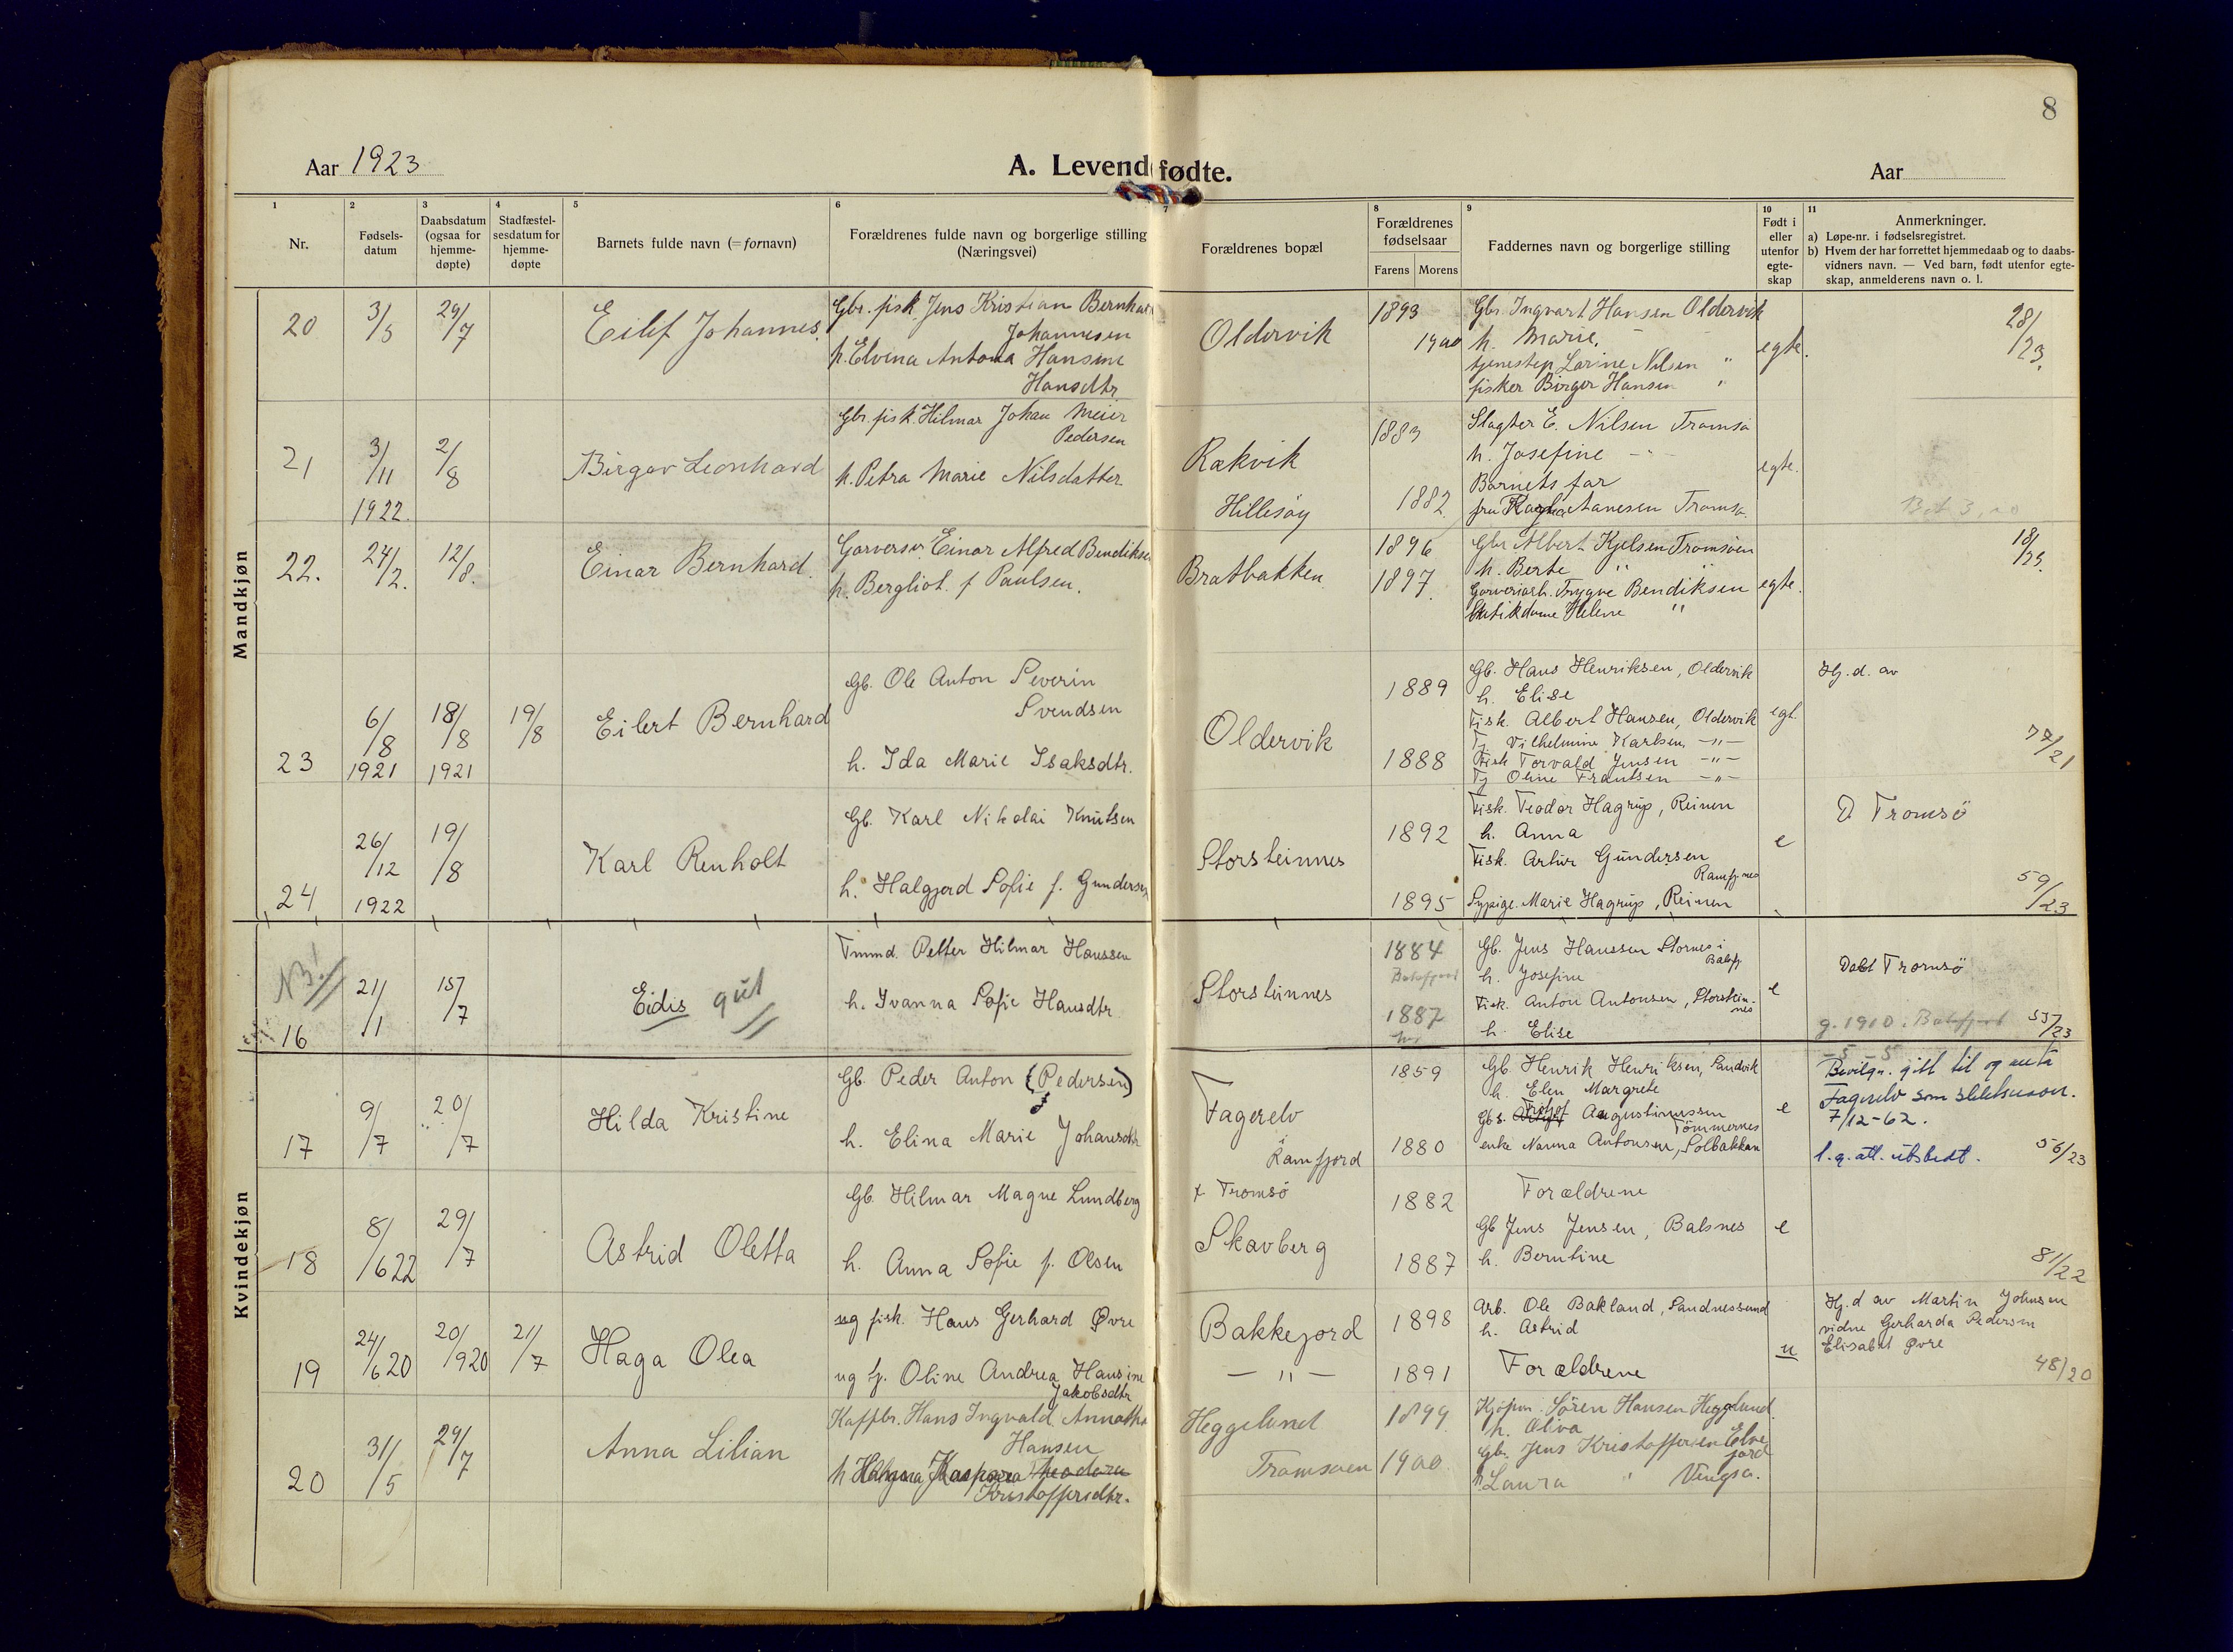 8
Aar 1923
A. Levendefødte.
Aar
1
2
3
4
5
6
7
8
9
10
11
Nr.
Fødsels-
datum
Daabsdatum
(ogsaa for
hjemme-
døpte)
Stadfæstel-
sesdatum for
hjemme-
døpte
Barnets fulde navn (= fornavn)
Forældrenes fulde navn og borgerlige stilling
(Næringsvei)
Forældrenes bopæl
Forældrenes
fødselsaar
Farens Morens
Faddernes navn og borgerlige stilling
Født i
eller
utenfor
egte-
skap
Anmerkninger.
a) Løpe-nr. i fødselsregistret.
b) Hvem der har forrettet hjemmedaab og to daabs-
vidners navn. — Ved barn, født utenfor egte-
skap, anmelderens navn o. l.
Mandkjøn
20
3/5
29/7
Eilef Johannes.
Gbr. fisk. Jens Kristian Bernhard
Johannesen
h. Elvina Antona Hansine
Hansdtr
Oldervik
1893
1900
Gbr. Ingvart Hansen Oldervik
h. Marie.
tjenestep Larine Nilsen "
fisker Birger Hansen "
egte.
28/23.
21
3/11
1922.
2/8
Birger Leonhard
Gbr. fisk. Hilmar Johan Meier
Pedersen
h. Petra Marie Nilsdatter
Rækvik
Hillesøy
1883
1882.
Slagter E. Nilsen Tromsø
h. Josefine - " -
Barnets far
fru Tromsø.
egte.
22.
24/2.
12/8.
Einar Bernhard.
Garversv. Einar Alfred Bendiksen
h. Bergliot. f Paulsen.
Bratbakken
1896
1897.
Gbr Albert Kjelsen Tromsøen
h. Berte " "
Garveriarb. Trygve Bendiksen
Butikdame Helene "
egte.
18/23.
23
6/8
1921
18/8
1921
19/8
Eilert Bernhard
Gb. Ole Anton Severin
Svendsen
h. Ida Marie Isaksdtr.
Oldervik
1889
1888
Gb. Hans Henriksen, Oldervik
h. Elise
Fisk. Albert Hansen, Oldervik
Tj. Vilhelmine Karlsen -"-
Fisk Torvald Jensen -"-
Tj Oline Frantsen -"-
egt.
Hj. d. av
77/21
24
26/12
1922
19/8
Karl Renholt
Gb. Karl Nikolai Knutsen
h. Halgjerd Sofie f. Gundersen
Storsteinnes
1892
1895
Fisk. Teodor Hagrup, Reinen
h. Anna
Fisk. Artur Gundersen
Ramfjnes
Sypige. Marie Hagrup, Reinen
e
D Tromsö
59/23
Kvindekjøn
NB!
16
21/1
15/7
Eidis gut
Tmmd. Petter Hilmar Hanssen
h. Ivanna Sofie Hansdtr
Storsteinnes
1884
Balsfjord
1887
Gb. Jens Hanssen Stornes i
Balsfj
h. Josefine
Fisk. Anton Antonsen, Storstein-
nes
h. Elise
e
Døbt Tromsö
g. 1910 i Balsfjord
55/23
17
9/7
20/7
Hilda Kristine
Gb. Peder Anton (Pedersen)
h. Elina Marie Johansdtr
Fagerelv
Ramfjord
1859
1880
Gb. Henrik Henriksen, Sandvik
h. Elen Margrete
Gbs. Augustinussen
Tömmernes
enke Nanna Antonsen, Solbakken
e
Bevilgn. gitt til og anta
Fagerelv som slektsnavn.
7/12-62.
l.g. att. utstedt.
56/23
18
8/6 22
29/7
Astrid Oletta
Gb. Hilmar Magne Lundberg
h. Anna Sofie f. Olsen
x Tromsö
Skavberg
1882
1887
Forældrene
Gb Jens Jensen, Balsnes
h. Berntine
e
81/22
19
24/6 20
20/9 20
21/7
Haga Olea
ug fisk. Hans Gerhard Øvre
ug tj. Oline Andrea Hansine
Jakobsdtr
Bakkejord
— " —
1898
1891
Arb. Ole Bakland, Sandnessund
h. Astrid
Forældrene
u
Hj.d av Martin Johnsen
vidne Gerharda Pedersen
Elisabet Øvre
48/20
20
31/5
29/7
Anna Lilian
Hans Ingvald
Hansen
h Kaspara Theodora
Kristoffersdtr.
Heggelund
Tromsøen
1899
1900
Kjøpm. Søren Hansen Heggelund.
h. Oliva
Gbr. Jens Kristoffersen Elve
jord
h. Laura " Vengsø.